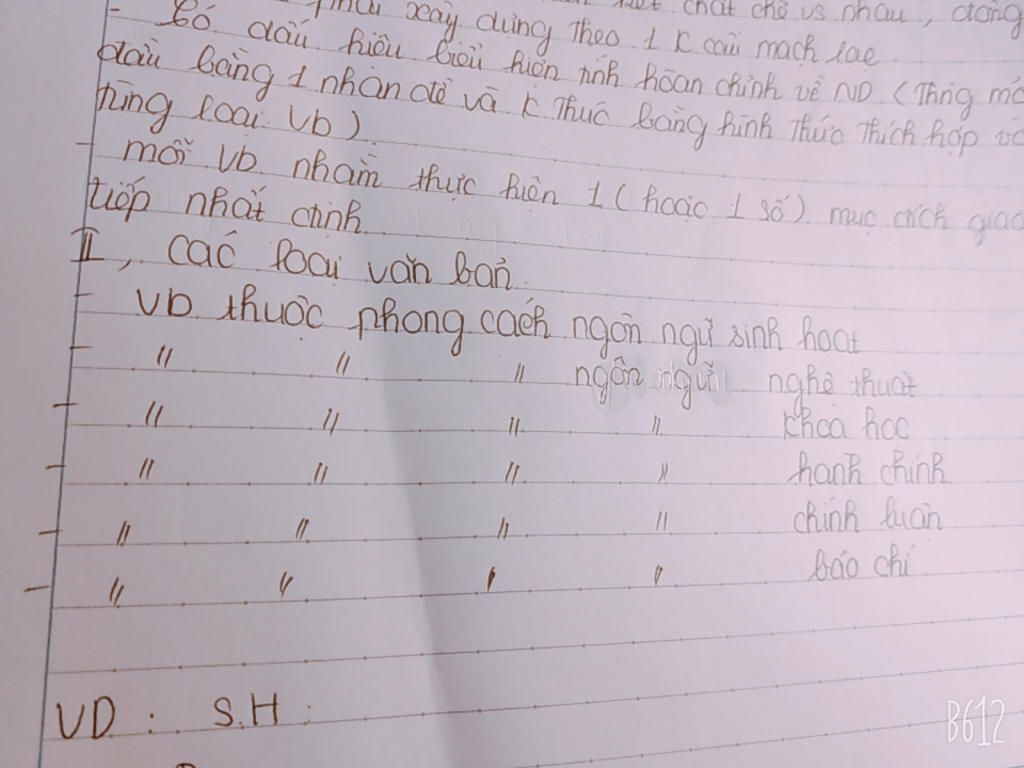 phải xây dựng theo 1 k cấu mạch lạc.
chặt chẽ vs nhau, đồng
- Có dấu hiệu biểu hiện tính hoàn chỉnh về ND (Thng mở
đầu bằng 1 nhan đề và k thúc bằng hình thức thích hợp vớ
từng loại Vb).
- mỗi Vb nhằm thực hiện 1 (hoặc 1 số) mục đích giao
tiếp nhất định.
II, các loại văn bản.
- Vb thuộc phong cách ngôn ngữ sinh hoạt
- " " " ngôn ngữ nghệ thuật
- " " " " khoa học
- " " " " hành chính
- " " " " chính luận
- " " " " báo chí
VD : S.H :
B612